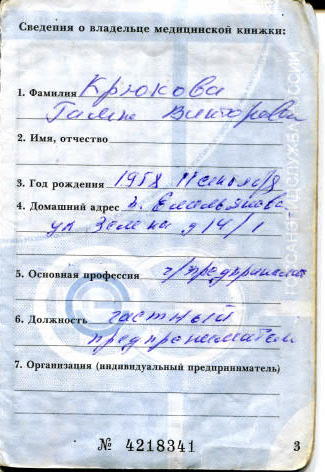 Сведения о владельце медицинской книжки:
1. Фамилия Крюкова
Галина Викторовна
2. Имя, отчество
3. Год рождения 1958
4. Домашний адрес
ул Зелена д 14/1
5. Основная профессия ч/предпринимат
6. Должность частный
предприниматель
7. Организация (индивидуальный предприниматель)
№ 4218341
3